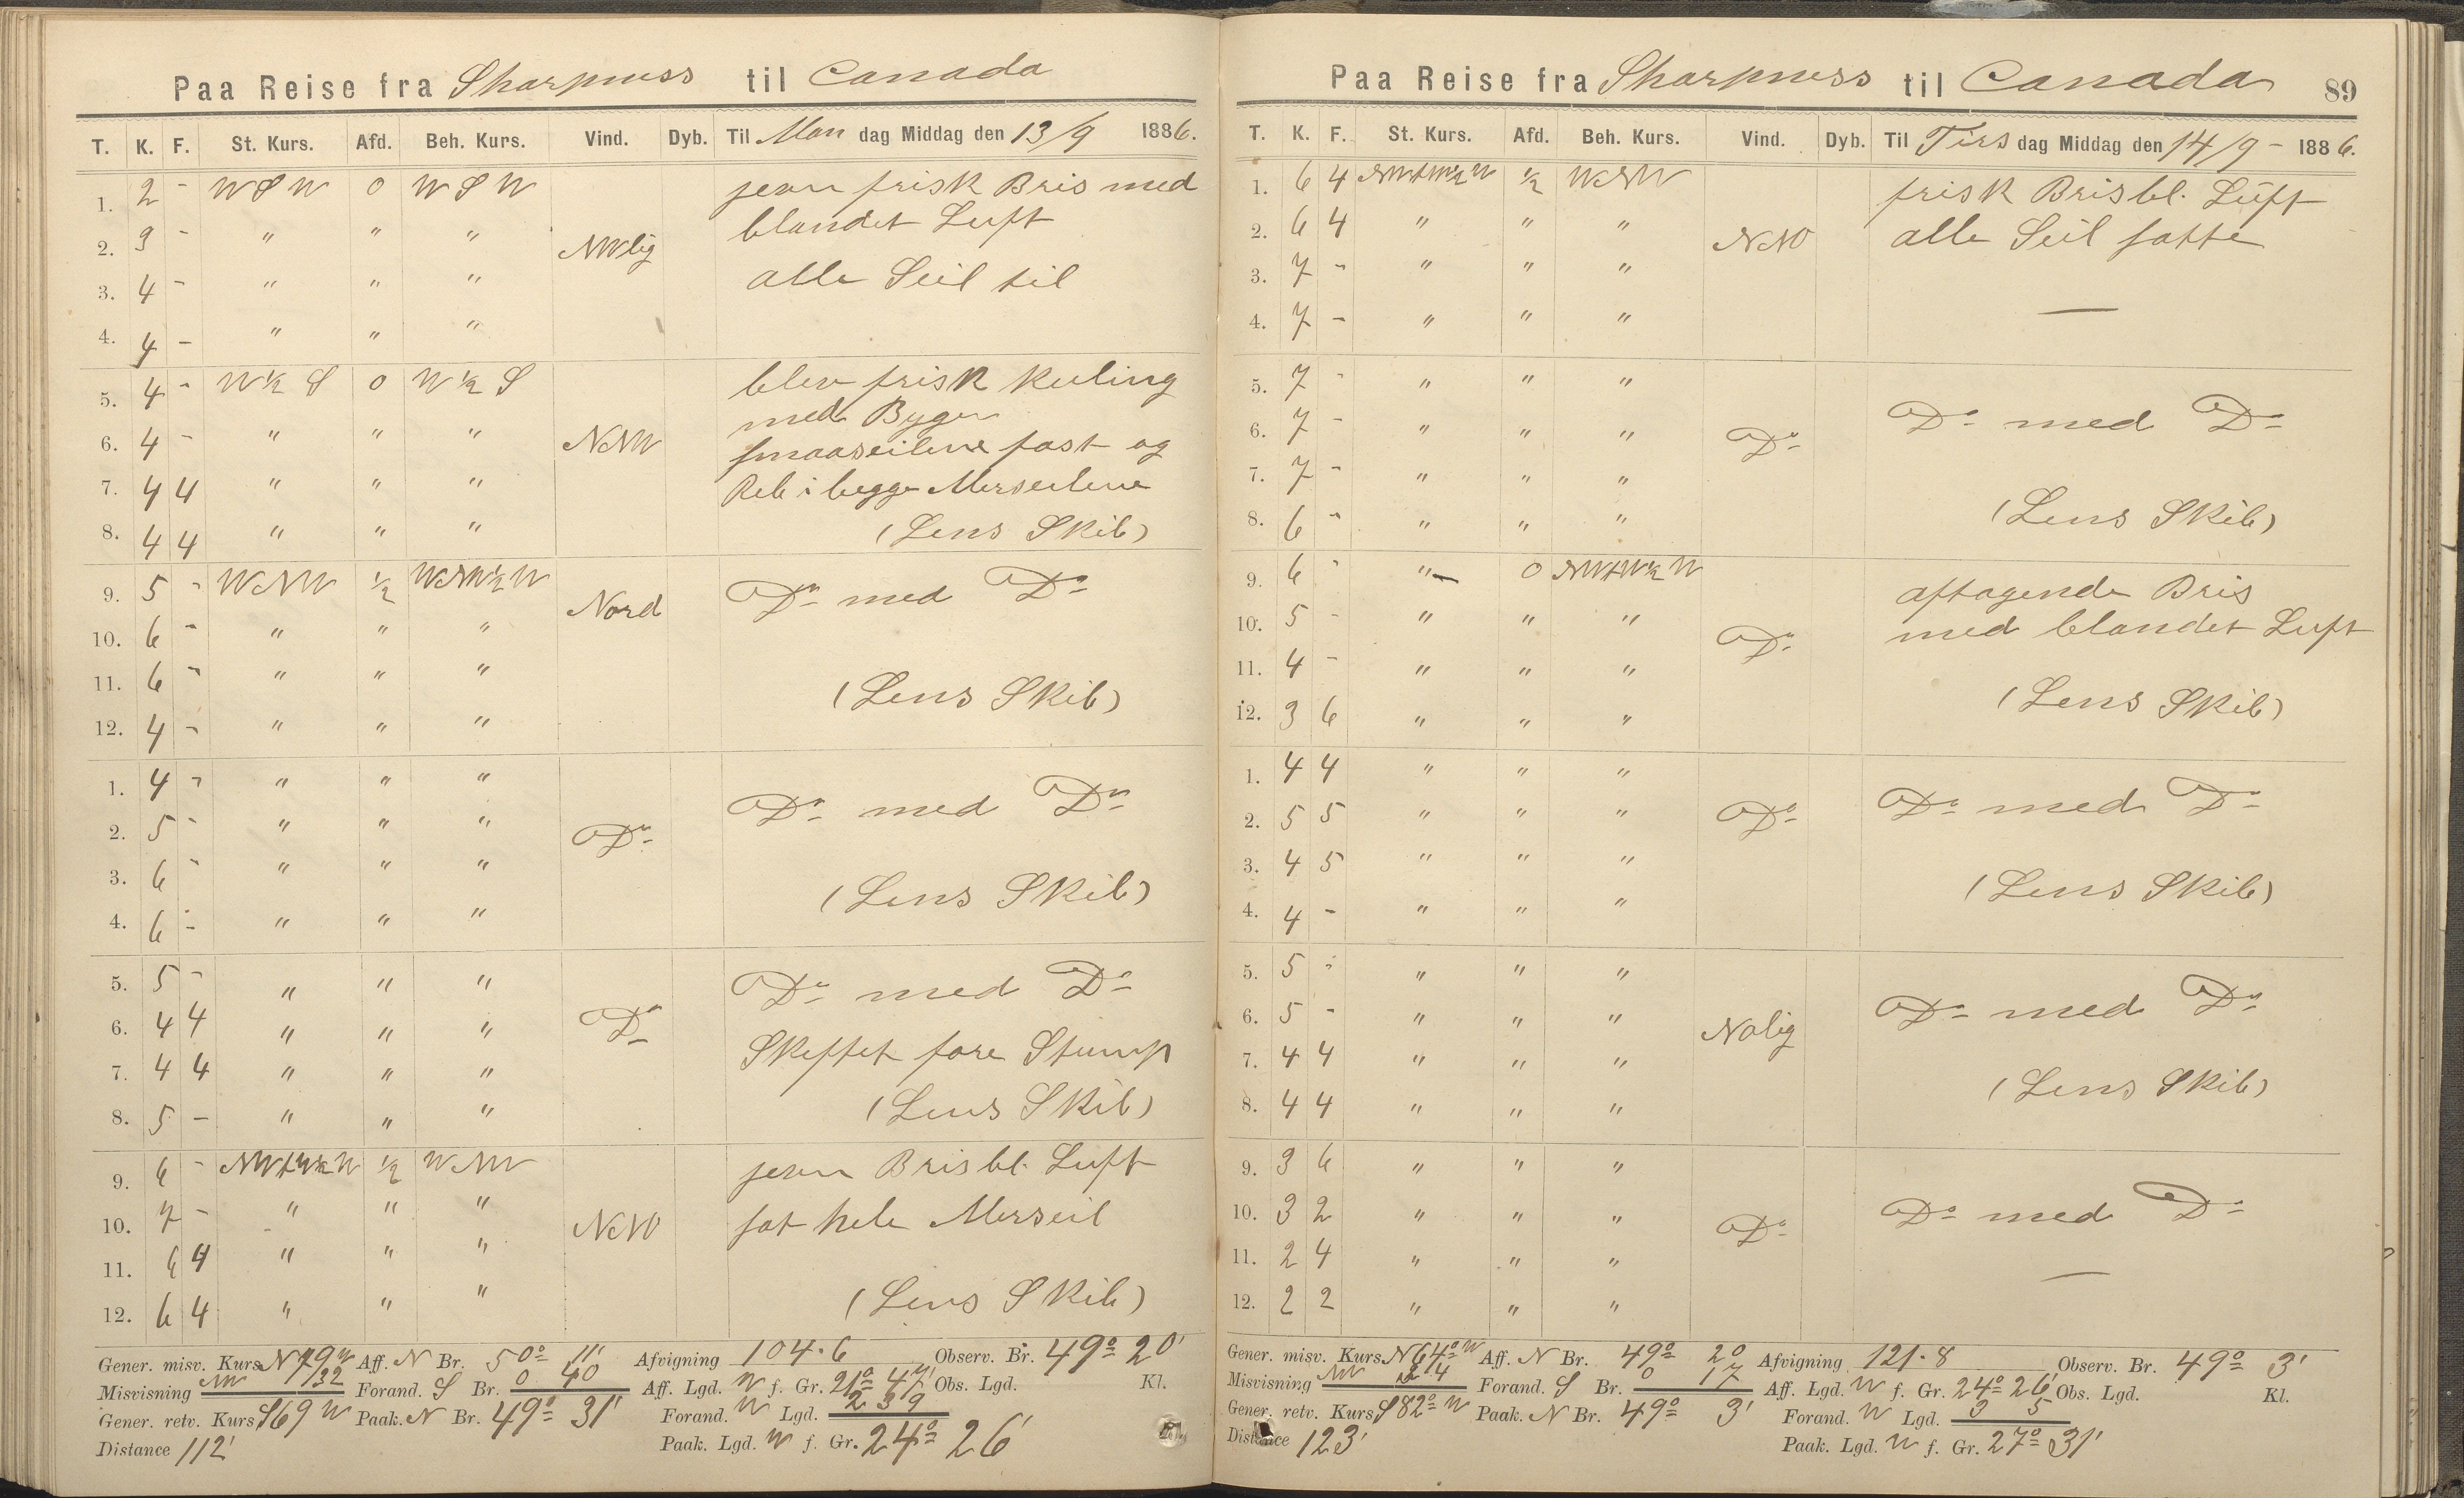 Paa Reise fra Sharpness til Canada
T. K. F. St. Kurs. Afd. Beh. Kurs. Vind. Dyb. Til Man dag Middag den 13/9 1886.
1. 2 - WSW 0 WSW jevn frisk Bris med
2. 3 - " " " NWlig blandet Luft
3. 4 - " " " alle Seil til
4. 4 - " " "
5. 4 - W½S 0 W½S blev frisk Kuling
med Byger
6. 4 - " " " NNW smaaseilene fast og
7. 4 4 " " " Reb i begge Merseilene
8. 4 4 " " " (Lens Skib)
9. 5 - WNW ½ WNW½W Nord Do med Do
10. 6 - " " "
11. 6 - " " " (Lens Skib)
12. 4 - " " "
1. 4 - " " " Do med Do
2. 5 - " " " Do
3. 6 - " " " (Lens Skib)
4. 6 - " " "
5. 5 - " " " Do med Do
6. 4 4 " " " Do Skeftet fore Stump
7. 4 4 " " "
8. 5 - " " " (Lens Skib)
9. 6 - NWtW½W ½ WNW jevn Bris bl. Luft
10. 7 - " " " NNO sat hele Merseil
11. 6 4 " " "
12. 6 4 " " " (Lens Skib)
Gener. misv. Kurs N79W Aff. N Br. 50° 11' Afvigning 104.6 Observ. Br. 49° 20'
Misvisning NW 32 Forand. S Br. 0 40 Aff. Lgd. W f. Gr. 21° 47' Obs. Lgd. Kl.
Gener. retv. Kurs S69W Paak. N Br. 49° 31' Forand. W Lgd. 2 39
Distance 112' Paak. Lgd. W f. Gr. 24° 26'
Paa Reise fra Sharpness til Canada 89
T. K. F. St. Kurs. Afd. Beh. Kurs. Vind. Dyb. Til Tirs dag Middag den 14/9 - 1886.
1. 6 4 NWtW½W ½ WNW frisk Bris bl. Luft
2. 6 4 " " " NNO alle Seil satte
3. 7 - " " "
4. 7 - " " " —
5. 7 - " " " Do med Do
6. 7 - " " " Do
7. 7 - " " "
8. 6 - " " " (Lens Skib)
9. 6 - " 0 NWtW½W aftagende Bris
10. 5 - " " " Do med blandet Luft
11. 4 - " " "
12. 3 6 " " " (Lens Skib)
1. 4 4 " " " Do med Do
2. 5 5 " " " Do
3. 4 5 " " " (Lens Skib)
4. 4 - " " "
5. 5 - " " " Do med Do
6. 5 - " " " Nolig
7. 4 4 " " " (Lens Skib)
8. 4 4 " " "
9. 3 6 " " "
10. 3 2 " " " Do Do med Do
11. 2 4 " " " —
12. 2 2 " " "
Gener. misv. Kurs N64°W Aff. N Br. 49° 20 Afvigning 121.8 Observ. Br. 49° 3'
Misvisning NW 34 Forand. S Br. 0 17 Aff. Lgd. W f. Gr. 24° 26' Obs. Lgd. Kl.
Gener. retv. Kurs S82°W Paak. N Br. 49° 3' Forand. W Lgd. 3 5
Distance 123' Paak. Lgd. W f. Gr. 27° 31'